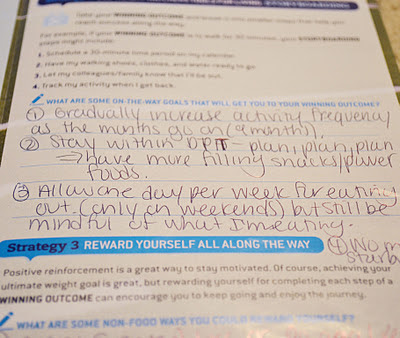 Take your WINNING OUTCOME and break it into smaller steps that help you
reach success along the way.
For example, if your WINNING OUTCOME is to walk for 30 minutes, your
steps might include:
1. Schedule a 30-minute time period on my calendar.
2. Have my walking shoes, clothes, and water ready to go.
3. Let my colleagues/family know that I'll be out.
4. Track my activity when I get back.
WHAT ARE SOME ON-THE-WAY GOALS THAT WILL GET YOU TO YOUR WINNING OUTCOME?
① Gradually increase activity frequency
as the months go on (9 months).
② Stay within - plan, plan, plan
⇒ have more filling snacks/power
foods.
③ Allow one day per week for eating
out. (only on weekends) but still be
mindful of what I'm eating.
④ No
Strategy 3 REWARD YOURSELF ALL ALONG THE WAY
Positive reinforcement is a great way to stay motivated. Of course, achieving your
ultimate weight goal is great, but rewarding yourself for completing each step of a
WINNING OUTCOME can encourage you to keep going and enjoy the journey.
WHAT ARE SOME NON-FOOD WAYS YOU COULD REWARD YOURSELF?